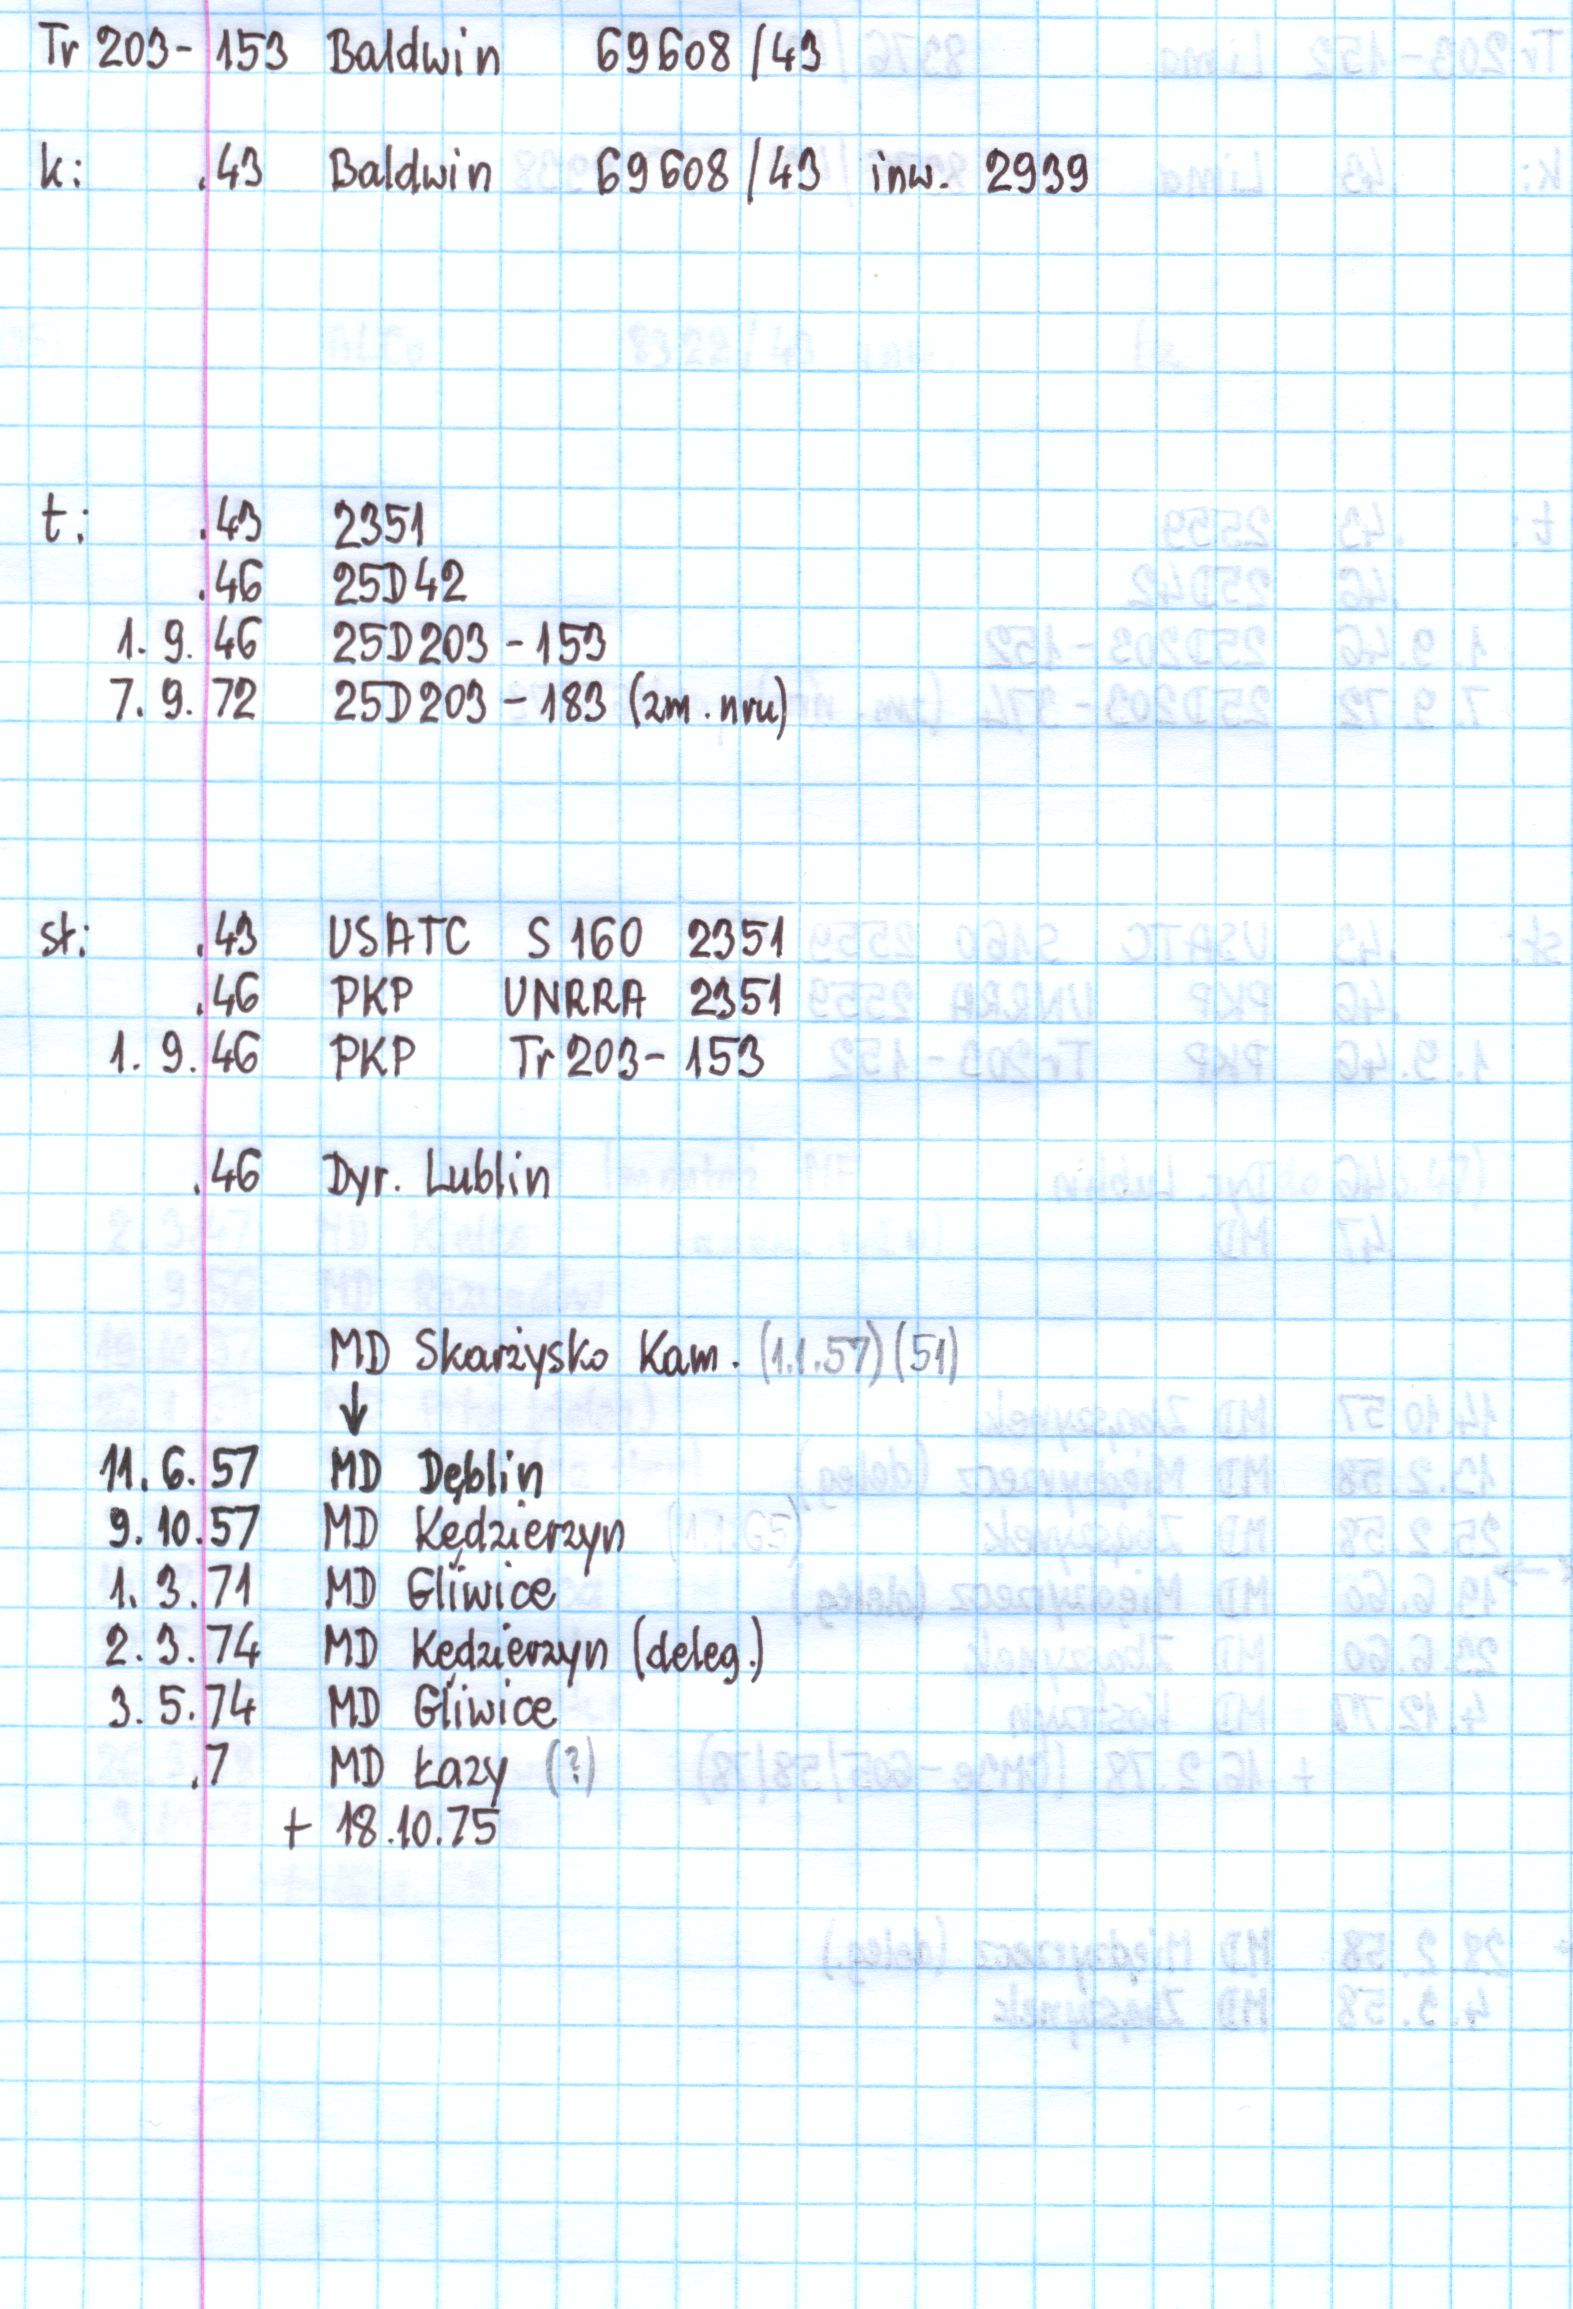 Tr 203-153 Baldwin 69608/43
k: .43 Baldwin 69608/43 inw. 2939
t: .43 2351
.46 25D42
1.9.46 25D203-153
7.9.72 25D203-183 (zm. nru)
st: .43 USATC S160 2351
.46 PKP UNRRA 2351
1.9.46 PKP Tr 203-153
.46 Dyr. Lublin
MD Skarżysko Kam. (1.1.57) (51)
↓
11.6.57 MD Dęblin
9.10.57 MD Kędzierzyn
1.3.71 MD Gliwice
2.3.74 MD Kędzierzyn (deleg.)
3.5.74 MD Gliwice
.7 MD Łazy (?)
+ 18.10.75